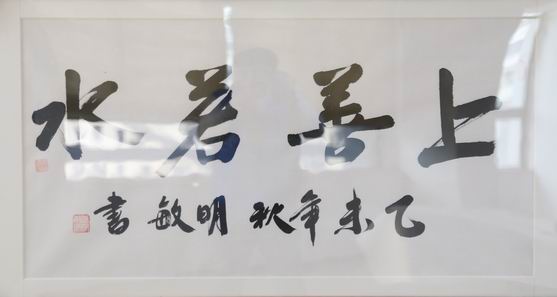 上善若水
乙未年秋 明敏書